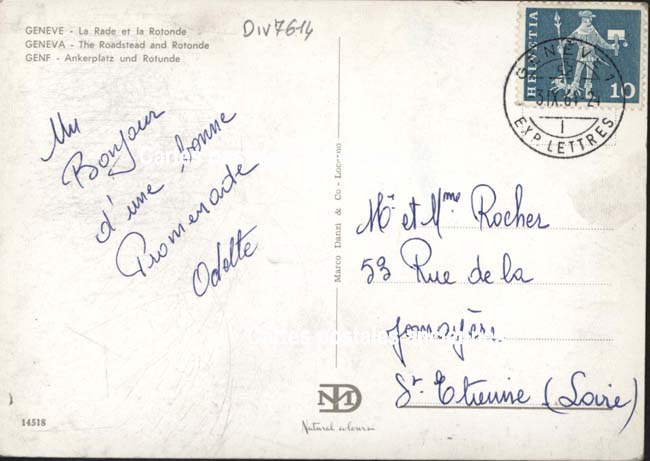 GENEVE - La Rade et la Rotonde
GENEVA - The Roadstead and Rotonde
GENF - Ankerplatz und Rotunde
DIV7614
HELVETIA
10
GENÈVE 1
EXP. LETTRES
Un
Bonjour
d'une bonne
Promenade
Odette
Marco Danzi & Co - Locarno
Mr et Mme Rocher
53 Rue de la
St. Etienne (Loire)
Cartes postales
14518
Natural colours